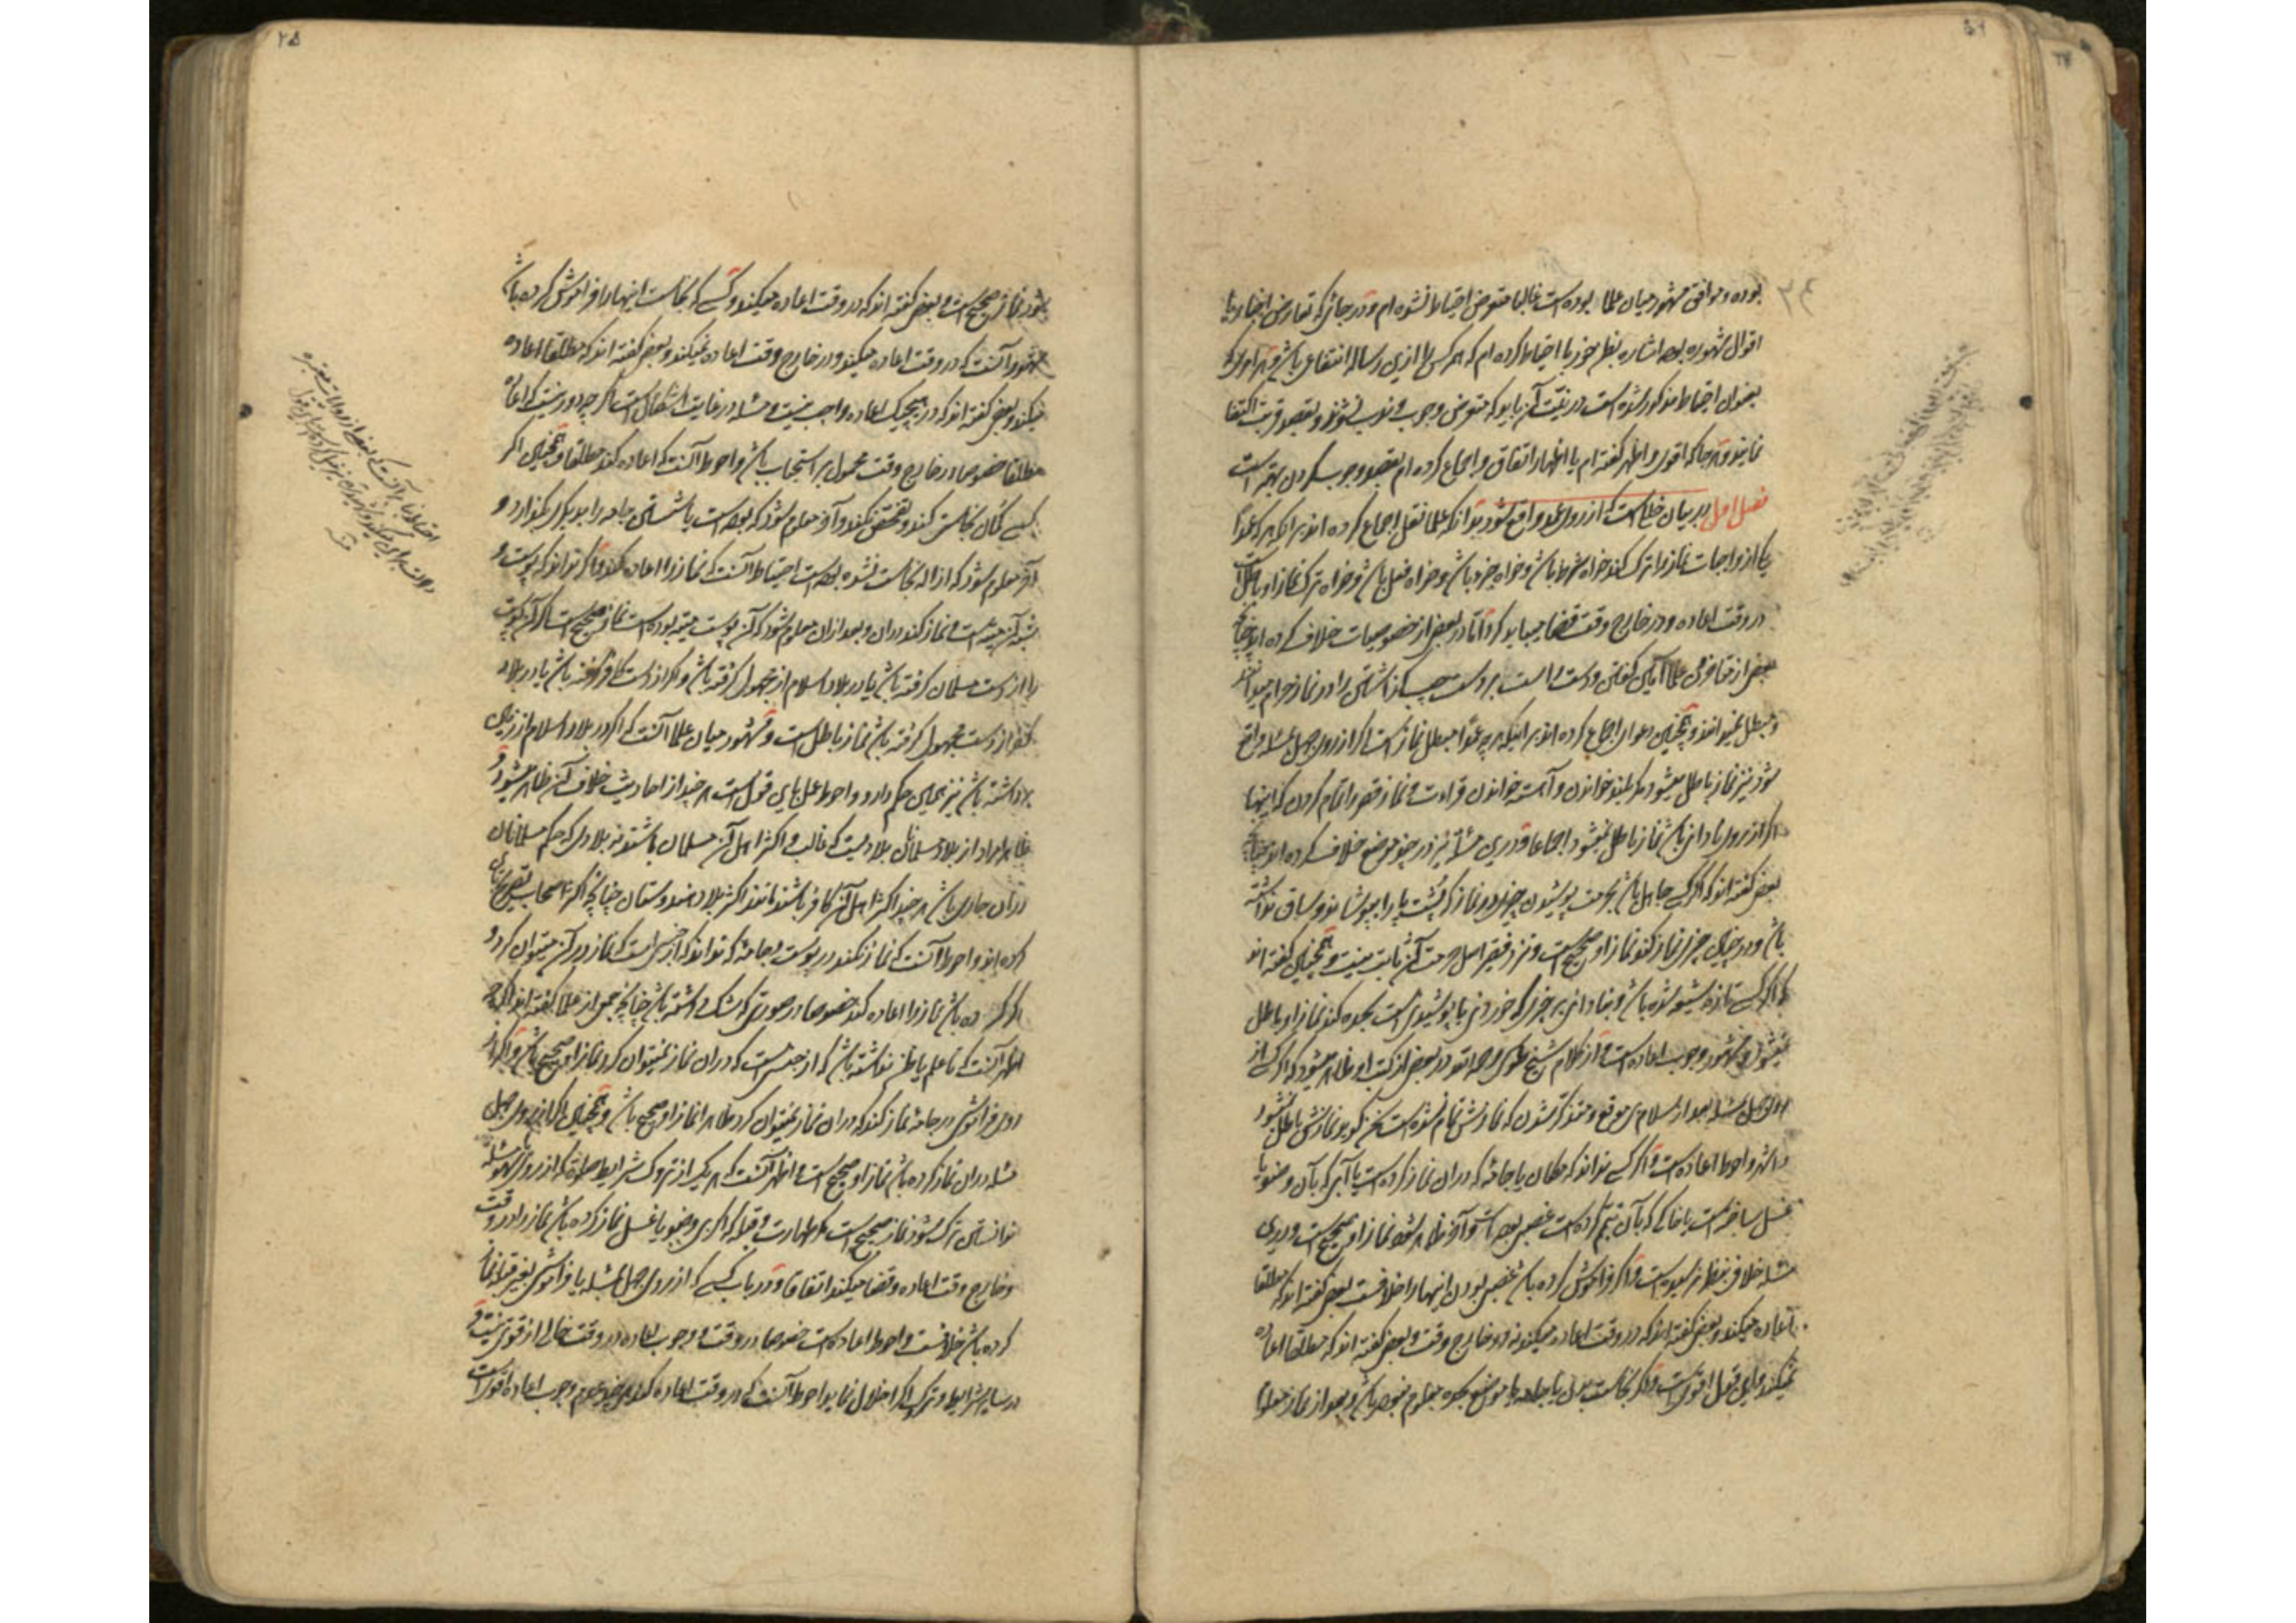 بوده و موافق مشهور میان علما بوده است غالبا متعرض احتیاط نشده‌ام و در جائی که تعارض اخبار یا
اقوال مشهوره بوده اشاره بفعل خود یا احتیاط کرده‌ام که هر کس را ازین رساله انتفاع باشد
بعنوان احتیاط مذکور شده است در نیّت آن باید که متعرض وجوب و ندب نشوند و بقصد قربت اکتفا
نمایند و هر جا که اقوی و اظهر گفته‌ام یا اظهار اتفاق و اجماع کرده‌ام بقصد وجوب کردن بهتر است
فصل اول در بیان خللی است که از روی عمد واقع شود بدانکه علما نقل اجماع کرده‌اند بر اینکه هر که عمدًا
یکی از واجبات نماز را ترک کند خواه شرط باشد و خواه جزو باشد و خواه فعل باشد و خواه ترک نماز او باطل است
در وقت اعاده و در خارج وقت قضا میباید کرد امّا در بعضی از خصوصیات خلاف کرده‌اند چنانچه
بعضی از علما آمین گفتن و دست راست بر دست چپ گذاشتن را در نماز حرام میدانند
و مبطل نمیدانند و همچنین دعوای اجماع کرده‌اند بر اینکه هر چه عمدًا مبطل نماز است اگر از روی جهل بمسئله واقع
شود نیز نماز باطل میشود مگر بلند خواندن و آهسته خواندن قرائت و نماز قصر را تمام کردن که اینها
اگر از روی نادانی باشد نماز باطل نمیشود اجماعا و درین مسئله نیز در چند موضع خلاف کرده‌اند چنانچه
بعضی گفته‌اند که اگر کسی جاهل باشد بحرمت پوشیدن چیزی در نماز که پشت پا را بپوشاند و ساق نداشته
باشد و در چنین چیزی نماز کند نماز او صحیح است و نزد فقیر اصل حرمت آن ثابت نیست و همچنین گفته‌اند
که اگر کسی تازه شیعه شده باشد و بنادانی بر چیزی که خوردنی یا پوشیدنی است سجده کند نماز او باطل
نمیشود و مشهور وجوب اعاده است و از کلام شیخ طوسی رحمه الله در بعضی از کتب او ظاهر میشود که اگر کسی از
روی جهل بمسئله بعد از سلام بی موقع و متذکر شدن که نمازش تمام نشده است سخن گوید نمازش باطل نمیشود
و اشهر و احوط اعاده است و اگر کسی نداند که مکان یا جامهٔ که دران نماز کرده است یا آبی که بآن وضو یا
غسل ساخته است یا خاکی که بآن تیمم کرده است غصبی بوده باشد و آخر ظاهر شود نماز او صحیح است و درین
مسئله خلافی بنظر نرسیده است و اگر فراموش کرده باشد غصبی بودن اینها را خلافست بعضی گفته‌اند که مطلقا
اعاده میکند و بعضی گفته‌اند که در وقت اعاده میکند نه در خارج وقت و بعضی گفته‌اند که مطلقا اعاده
نمیکند و این قول اقوی است و اگر نجاست بدن یا جامه یا موضع سجده معلوم نبوده باشد و بعد از نماز معلوم
شود نمازش صحیح است و بعضی گفته‌اند که در وقت اعاده میکند و کسی که نجاست اینها را فراموش کرده باشد
مشهور آنست که در وقت اعاده میکند و در خارج وقت اعاده نمیکند و بعضی گفته‌اند که مطلقا اعاده
میکند و بعضی گفته‌اند که در هیچیک اعاده واجب نیست و مسئله در غایت اشکال است اگر چه دور نیست که اعاده
مطلقا خصوصا در خارج وقت محمول بر استحباب باشد و احوط آنست که اعاده کند مطلقا و همچنین اگر
کسی گمان نجاستی کند و تفحص نکند و آخر معلوم شود که بوده است یا شستن جامه را بدیگری گذارد و
آخر معلوم شود که ازاله نجاست نشده بوده است احتیاط آنست که نماز را اعاده کند و اگر نداند که پوست
میته است و نماز کند دران و بعد ازان معلوم شود که آن پوست میته بوده است نمازش صحیح است اگر آن پوست
را از دست مسلمان گرفته باشد یا در بلاد اسلام از مجهول گرفته باشد و اگر از دست کافر گرفته باشد یا در بلاد
کفر از دست مجهول گرفته باشد نماز باطل است و مشهور میان علما آنست که اگر در بلاد اسلام از زمین
برداشته باشد نیز همین حکم دارد و احوط عمل باین قول است هر چند از احادیث خلاف آن ظاهر میشود و
ظاهرا مراد از بلاد مسلمانان بلادیست که غالب و اکثر اهل آن مسلمان باشند نه بلادی که حکم مسلمانان
دران جاری باشد هر چند اکثر اهل آن کافر باشند مانند اکثر بلاد هندوستان چنانچه اکثر اصحاب تصریح باین
کرده‌اند و احوط آنست که نماز نکند در پوست و جامهٔ که نداند که از جنسی است که نماز در آن میتوان کرد و
اگر کرده باشد نماز را اعاده کند خصوصا در صورتی که شک داشته باشد چنانچه جمعی از علما گفته‌اند اگر چه
اظهر آنست که تا علم یا ظن نداشته باشد که از جنسی است که دران نماز نمیتوان کرد نماز او صحیح باشد و اگر از
روی فراموشی در جامهٔ نماز کند که دران نماز نمیتوان کرد ظاهرا نماز او صحیح باشد و همچنین اگر از روی جهل
مسئله دران نماز کرده باشد نماز او صحیح است و اظهر آنست که هر یک از تروک شرایط صلوة که از روی سهو
ندانستن ترک شود نماز صحیح است مگر طهارت و قبله که اگر بی وضو یا غسل نماز کرده باشد نماز را در وقت
و خارج وقت اعاده و قضا میکند اتفاقا و در باب کسی که از روی جهل بمسئله یا فراموشی بغیر قبله نماز
کرده باشد خلافست و احوط اعاده است خصوصا در وقت و وجوب اعاده در وقت خالی از قوتی نیست و
در سایر شرایط و تروک اگر اخلال نماید احوط آنست که در وقت اعاده کند هر چند عدم وجوب اعاده اقوی است